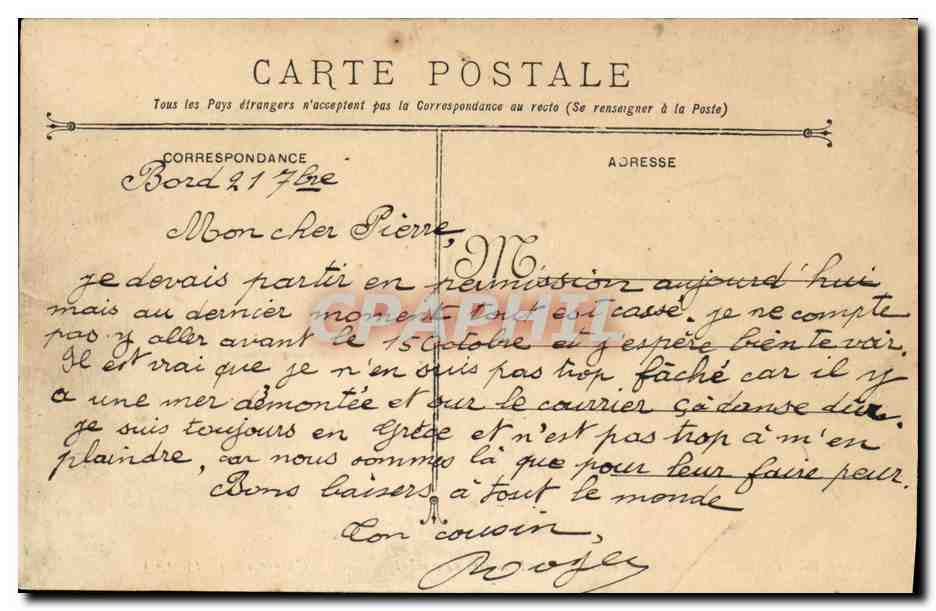 CARTE POSTALE
Tous les Pays étrangers n'acceptent pas la Correspondance au recto (Se renseigner à la Poste)
CORRESPONDANCE
ADRESSE
Bord 21 7bre
Mon cher Pierre,
M
je devais partir en permission aujourd'hui
mais au dernier moment tout est cassé. je ne compte
pas y aller avant le 15 Octobre et j'espère bien te voir.
Il est vrai que je n'en suis pas trop fâché car il y
a une mer démontée et sur le courrier çà danse dur.
je suis toujours en Grèce et n'est pas trop à m'en
plaindre, car nous sommes là que pour leur faire peur.
Bons baisers à tout le monde
Ton cousin,
Roger
CPAPHIL